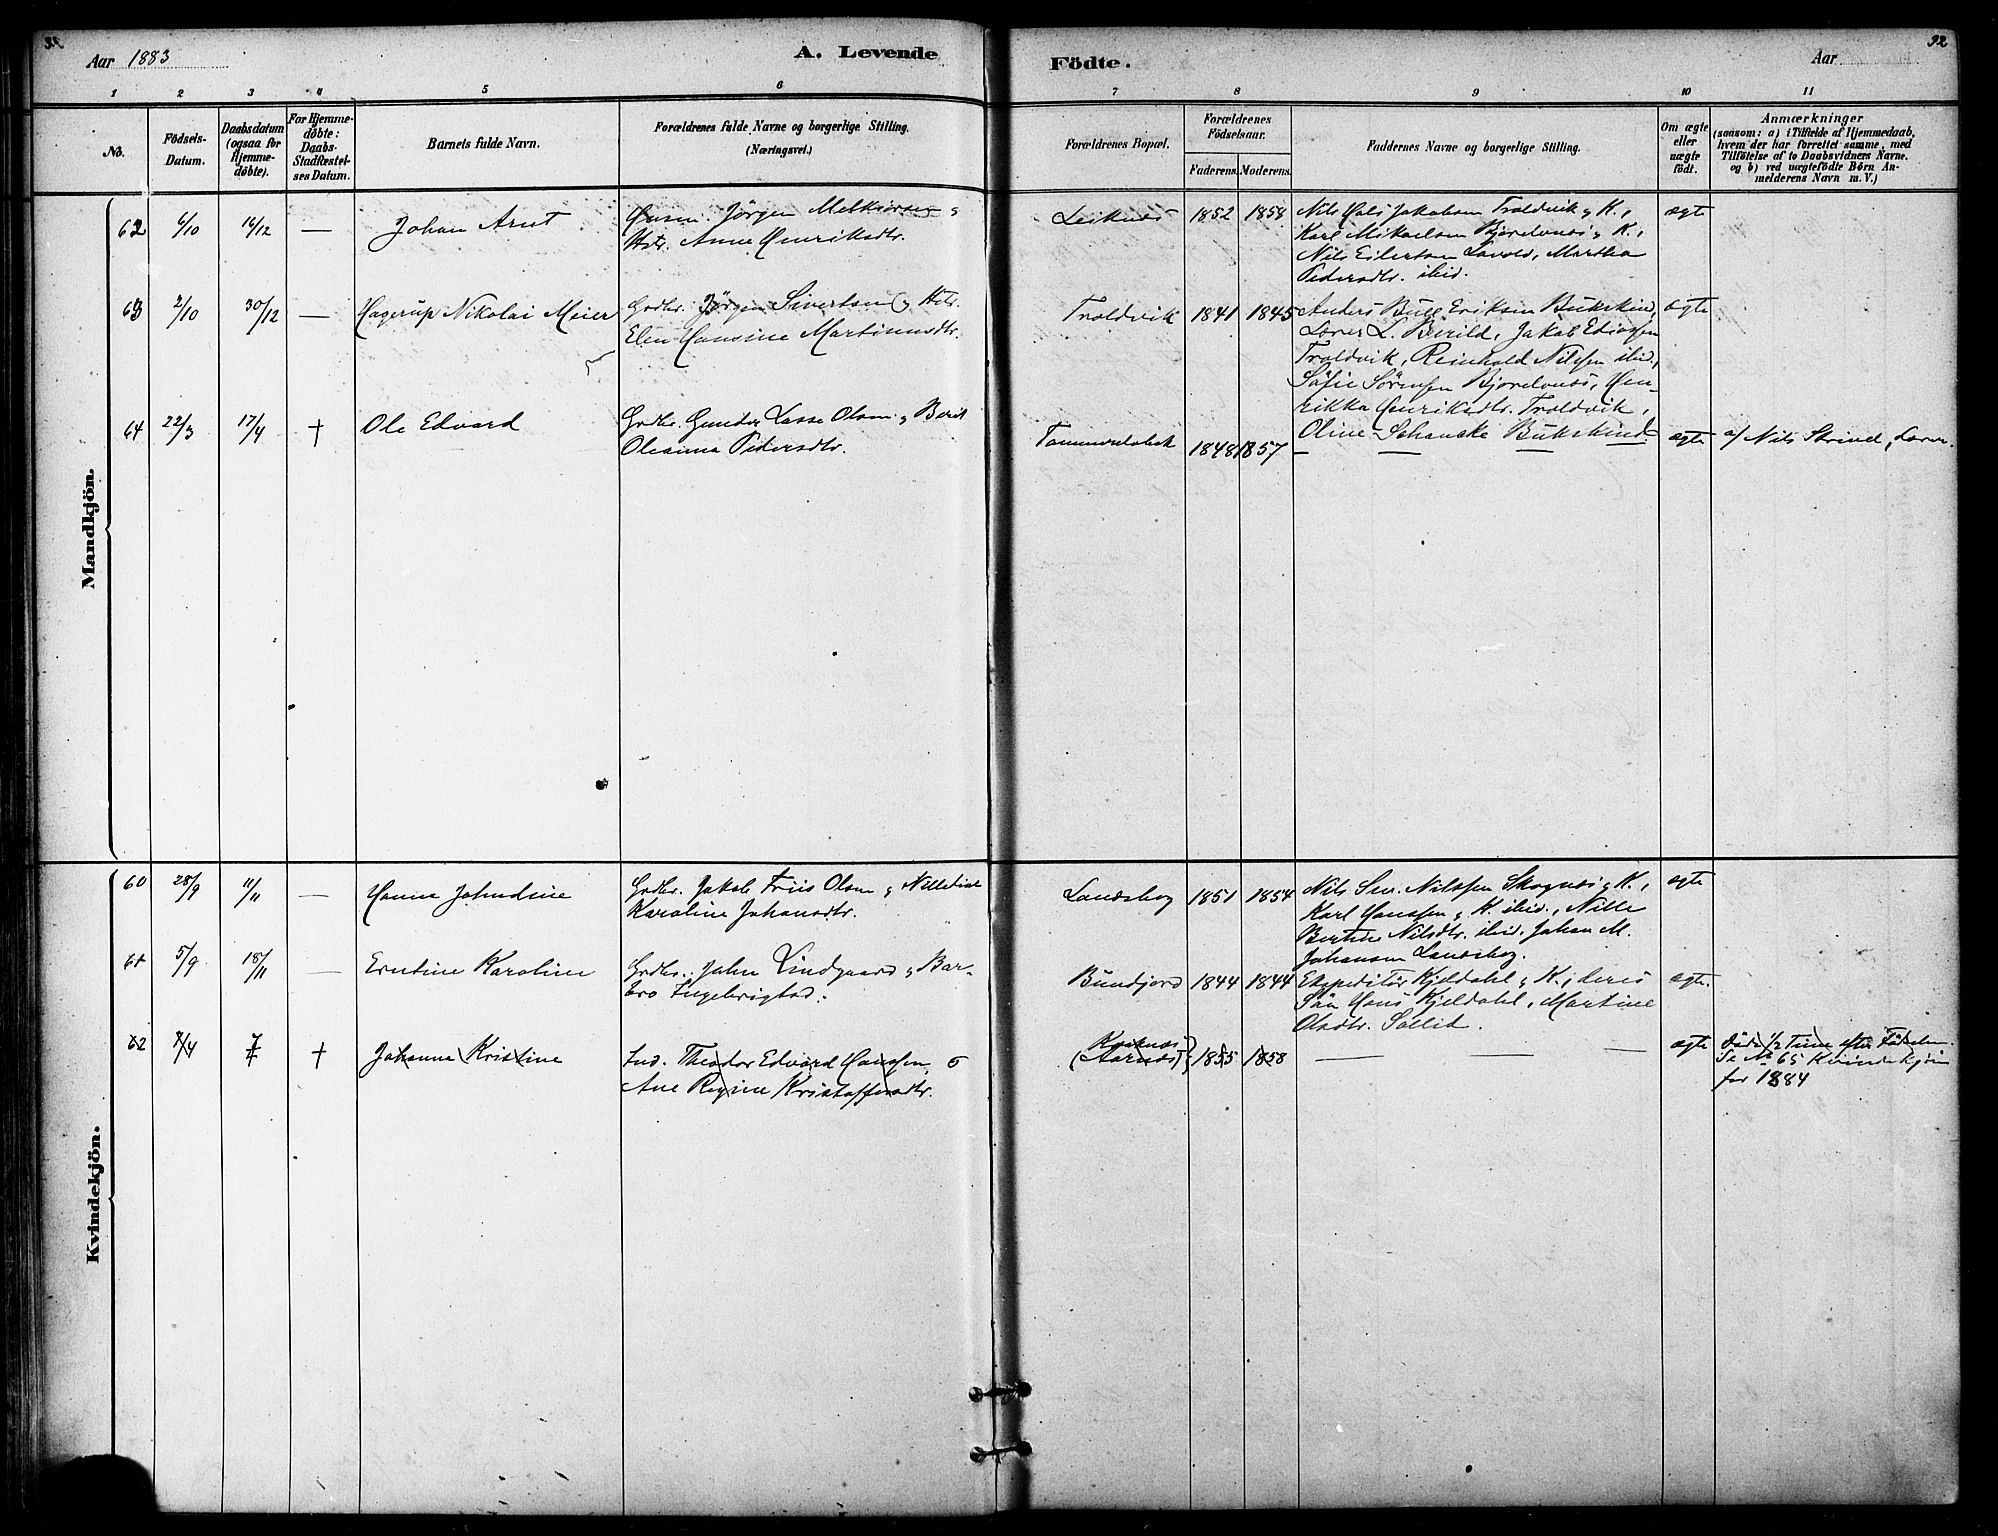 Aar 1883
A. Levende
Födte.
Aar
32
1 2 3 4 5 6 7 8 9 10 11
No.
Födsels-
Datum.
Daabsdatum
(ogsaa for
Hjemme-
döbte).
For Hjemme-
döbte:
Daabs-
Stadfæstel-
ses Datum.
Barnets fulde Navn.
Forældrenes fulde Navne og borgerlige Stilling.
(Næringsvei.)
Forældrenes Bopæl.
Forældrenes
Födselsaar.
Faderens. Moderens.
Faddernes Navne og borgerlige Stilling.
Om ægte
eller
uægte
födt.
Anmærkninger
(saasom: a) i Tilfælde af Hjemmedaab,
hvem der har forrettet samme, med
Tilföielse af to Daabsvidners Navne.
og b) ved uægtefödte Börn An-
melderens Navn m. V.)
Mandkjön.
62 6/10 16/12 — Johan Arnt
Jörgen Melkiorsen &
Hstr. Anne Henriksdtr.
Leiknes 1852 1858
Nils Hals Jakobsen Troldvik & K.,
Karl Mikaelsen Bjorelvnes & K.,
Nils Eilertsen Lavold, Martha
Pedersdtr. ibid.
ægte
63 2/10 30/12 — Hagerup Nikolai Meier
Grdbr. Jörgen Sivertsen & Hstr.
Elen Hansine Martinusdtr.
Troldvik 1841 1845
Anders Bugg Eriksen Bukskind,
Lærer L. Berild, Jakob Ediassen
Troldvik, Reinhold Nilssen ibid.,
Söfie Sörensen Bjorelvnes, Hen-
rikka Henriksdtr. Troldvik,
Oline Schancke Bukskind
ægte
64 22/3 17/4 † Ole Edvard
Grdbr. Gunder Lasse Olsen & Berit
Oleanna Pedersdtr.
1848 1857
— — — —
ægte
a/ Nils Skrived, Lærer
Kvindekjön.
60 28/9 11/11 — Hanna Johndine
Grdbr. Jakob Friis Olsen & Nille
Karoline Johansdtr.
Landsbog 1851 1854
Nils Sen. Nilssen Skognes & K.,
Karl Hanssen & K. ibid., Nille
Bertine Nilsdtr. ibid. Johan M.
Johansen Landsbog.
ægte
61 5/9 18/11 — Erntine Karoline
Grdbr. John Lindgaard & Bar-
bro Ingebrigtsd.
Bundjord 1844 1844
Ekspeditör Kjeldahl & K., deres
Sön Hans Kjeldahl, Martine
Olsdtr. Sollid.
ægte.
62 7/4 † Johanna Kristine
Ind. Theodor Edvard Hanssen, o
Ane Regine Kristoffersdtr.
Kveknes
(Aarnes) 1855 1858
— — —
ægte
Döde 1/2 Time efter Födselen.
Se No 65 Kvindekjön
for 1884